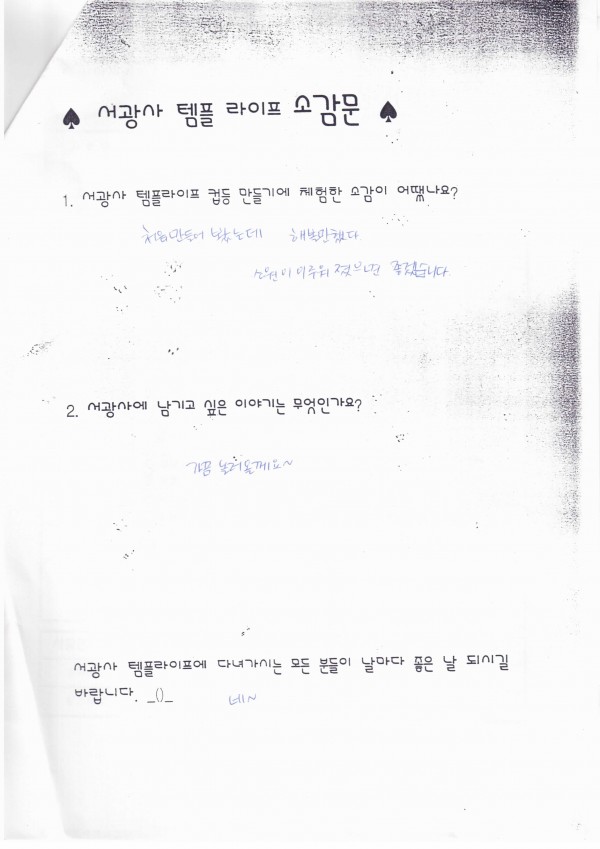 ♠ 서광사 템플 라이프 소감문 ♠
1. 서광사 템플라이프 컵등 만들기에 체험한 소감이 어땠나요?
처음만들어 봤는데 행복만했다
소원이 이루워 졌으면 좋겠습니다
2. 서광사에 남기고 싶은 이야기는 무엇인가요?
가끔 놀러올께요~
서광사 템플라이프에 다녀가시는 모든 분들이 날마다 좋은 날 되시길
바랍니다. _()_ 네~